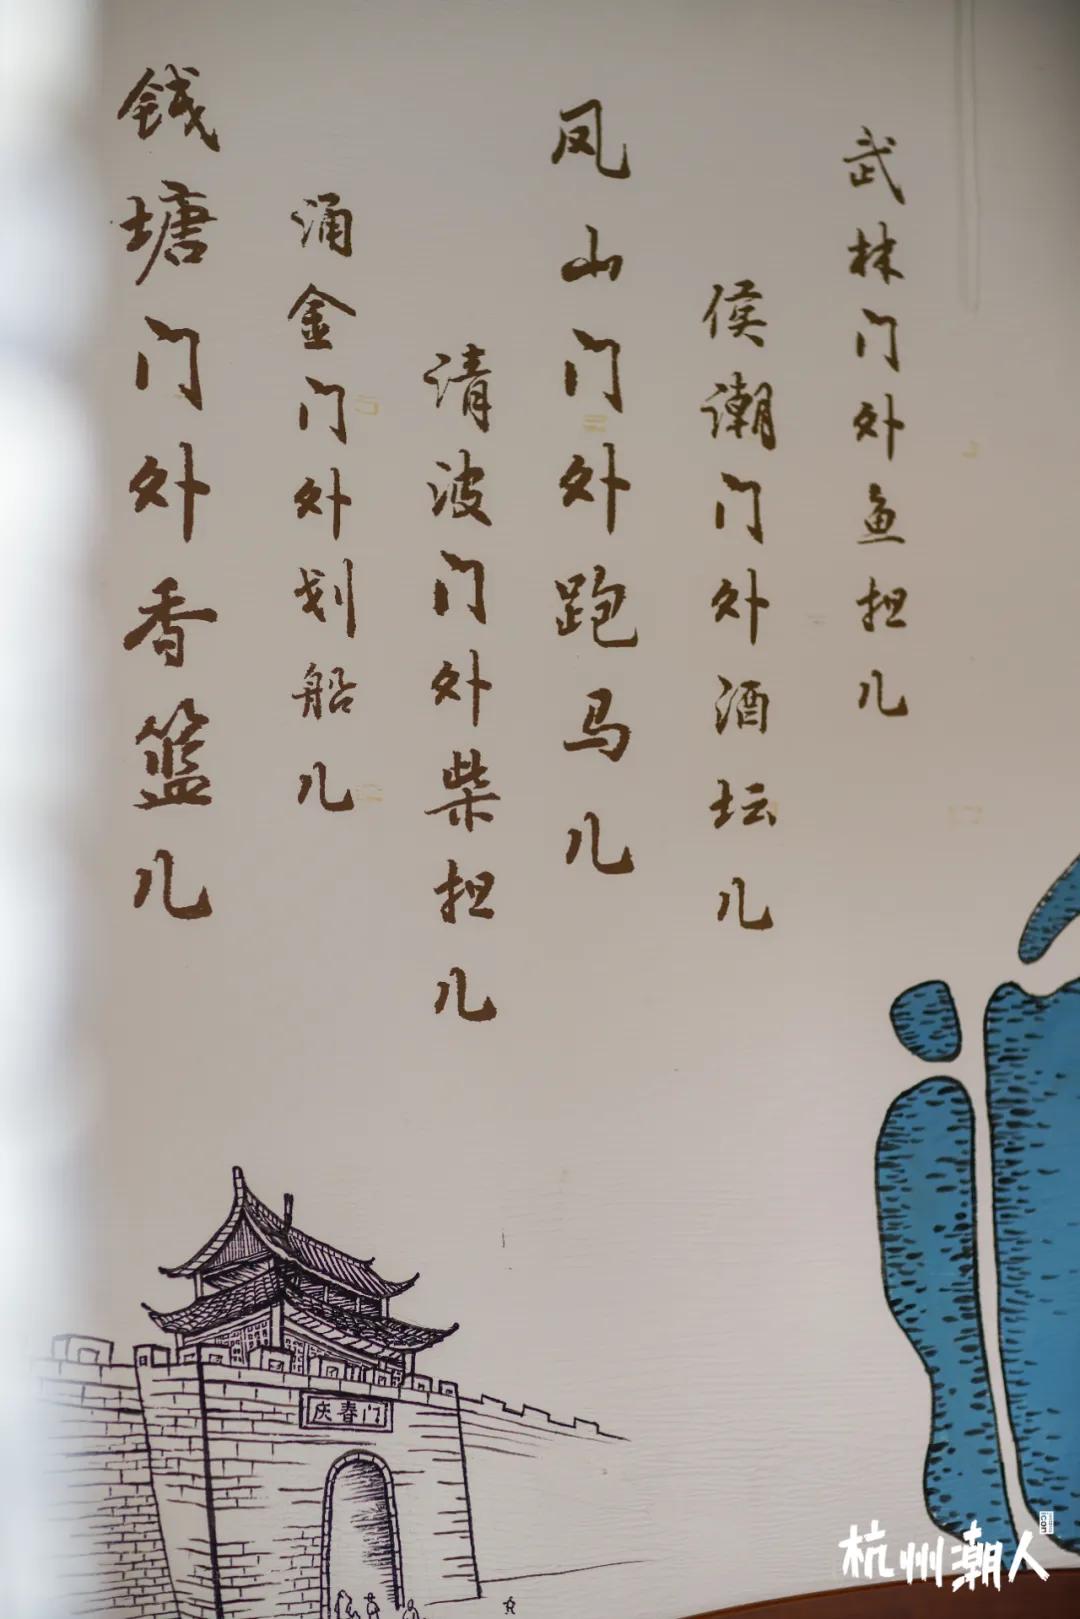 武林门外鱼担儿
候潮门外酒坛儿
凤山门外跑马儿
清波门外柴担儿
涌金门外划船儿
钱塘门外香篮儿
庆春门
杭州潮人